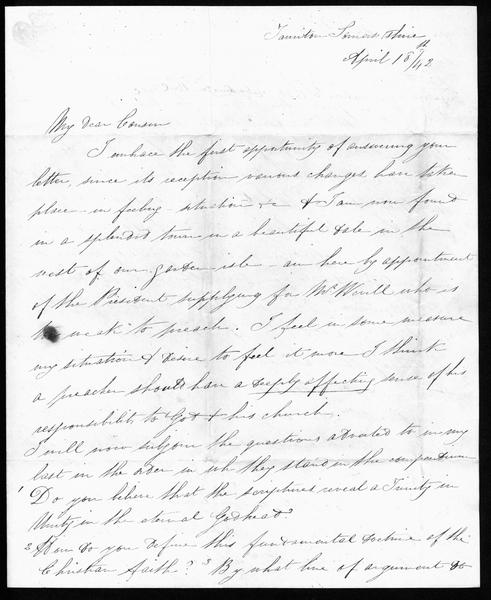 Taunton Somers.shire
April 18th/42
My dear Cousin
I embrace the first opportunity of answering your
letter, since its reception various changes have taken
place - in feeling situation &c & I am now found
in a splendid town in a beautiful vale in the
west of our garden isle - am here by appointment
of the President supplying for Mr who is
too weak to preach. I feel in some measure
my situation & desire to feel it more I think
a preacher should have a deeply affecting sense of his
responsibility to God & his church.
I will now subjoin the questions adverted to in my
last in the order in wh they stand in the compendium
1 Do you believe that the scriptures reveal a Trinity in
Unity in the eternal Godhead?
2 How do you define this fundamental doctrine of the
Christian faith? 3 By what line of argument do